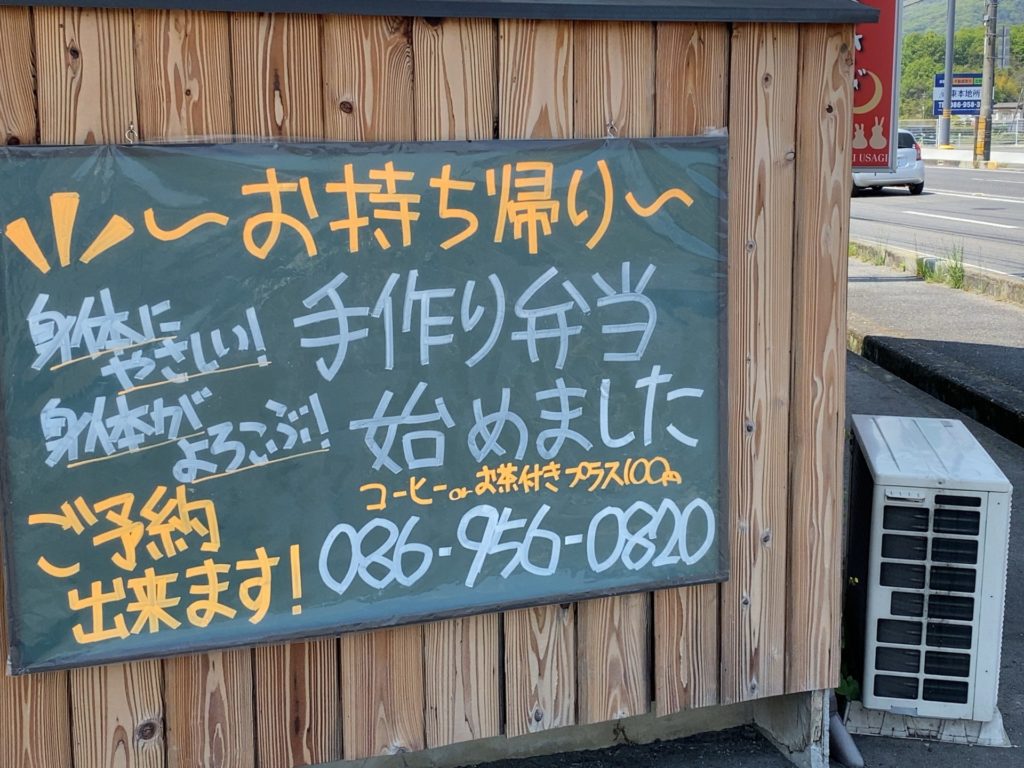 〜お持ち帰り〜
身体に
やさしい!
手作り弁当
身体が
よろこぶ!
始めました
コーヒーorお茶付きプラス100円
ご予約
出来ます!
086-956-0820
USAGI
車本地所
086-958-3